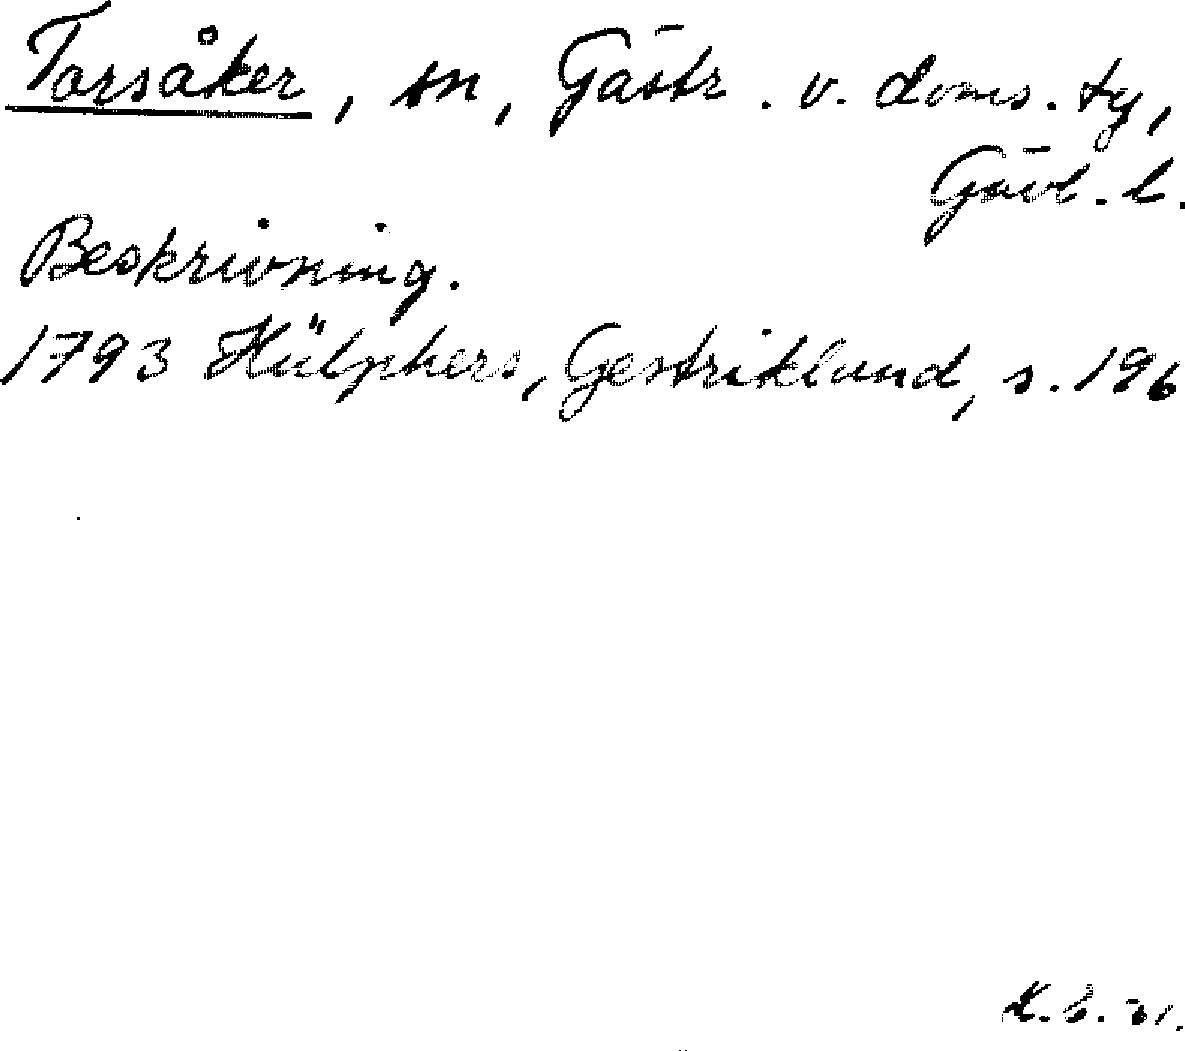 Torsåker, sn, Gästr. v. doms. ty,
Gävl. l.
Beskrivning.
1793 Hülphers, Gestrikland, s. 196